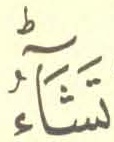 تَشَآءُؕ